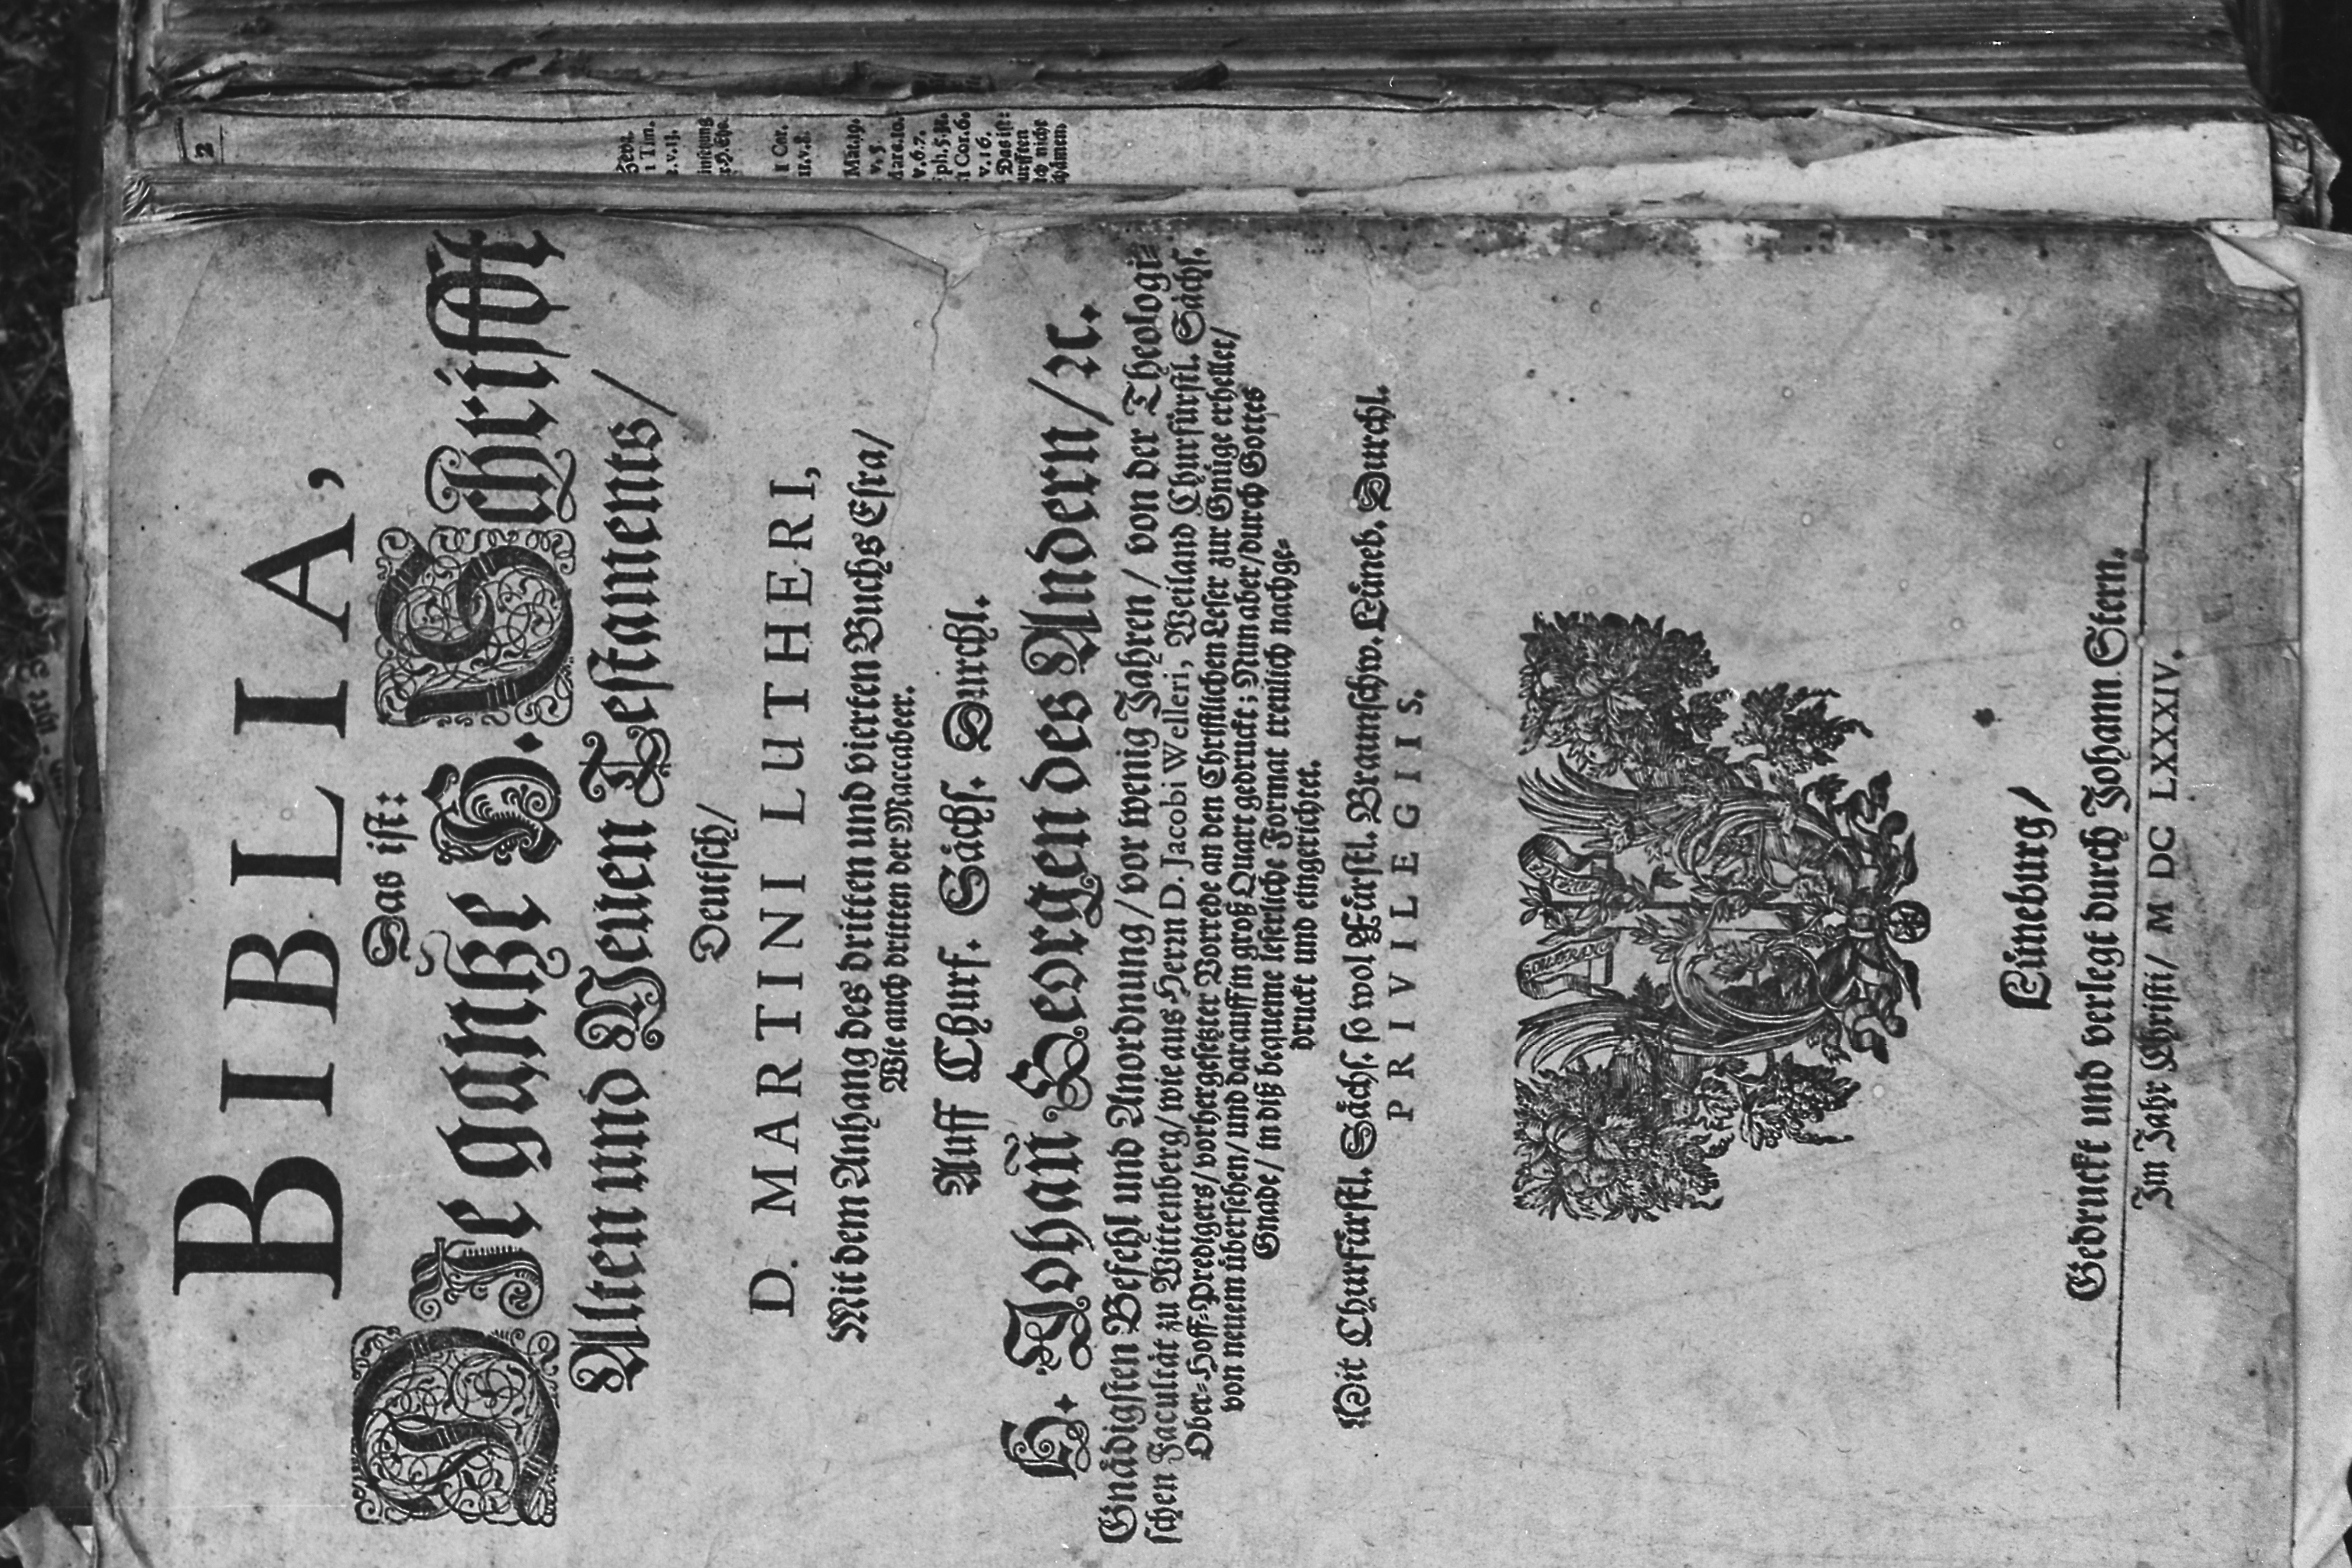 BIBLIA,
Das ist:
Die gantze H. Schrifft
Alten und Neuen Testaments/
Deutsch/
D. MARTINI LUTHERI,
Mit dem Anhang des dritten und vierten Buchs Esra/
Wie auch dritten der Maccabeer.
Auff Churf. Sächs. Durchl.
H. Johañ Georgen des Andern/ ꝛc.
Gnädigsten Befehl und Anordnung/ vor wenig Jahren/ von der Theologi=
schen Facultät zu Wittenberg/ wie aus Herrn D. Jacobi Welleri, Weiland Churfürstl. Sächs.
Ober=Hoff=Predigers/ vorhergesetzter Vorrede an den Christlichen Leser zur Gnüge erhellet/
von neuem übersehen/ und darauff in groß Quart gedruckt; Nun aber/ durch Gottes
Gnade/ in diß bequeme leserliche Format treulich nachge=
druckt und eingerichtet.
Mit Churfürstl. Sächs. so wol Fürstl. Braunschw. Lüneb. Durchl.
PRIVILEGIIS.
Lüneburg/
Gedruckt und verlegt durch Johann Stern.
Im Jahr Christi/ M DC LXXXIV.
2
1 Tim.
1 Cor.
11. v. 8.
Mat. 19.
v. 5.
v. 6. 7.
1 Cor. 6.
v. 16.
Das ist:
nicht